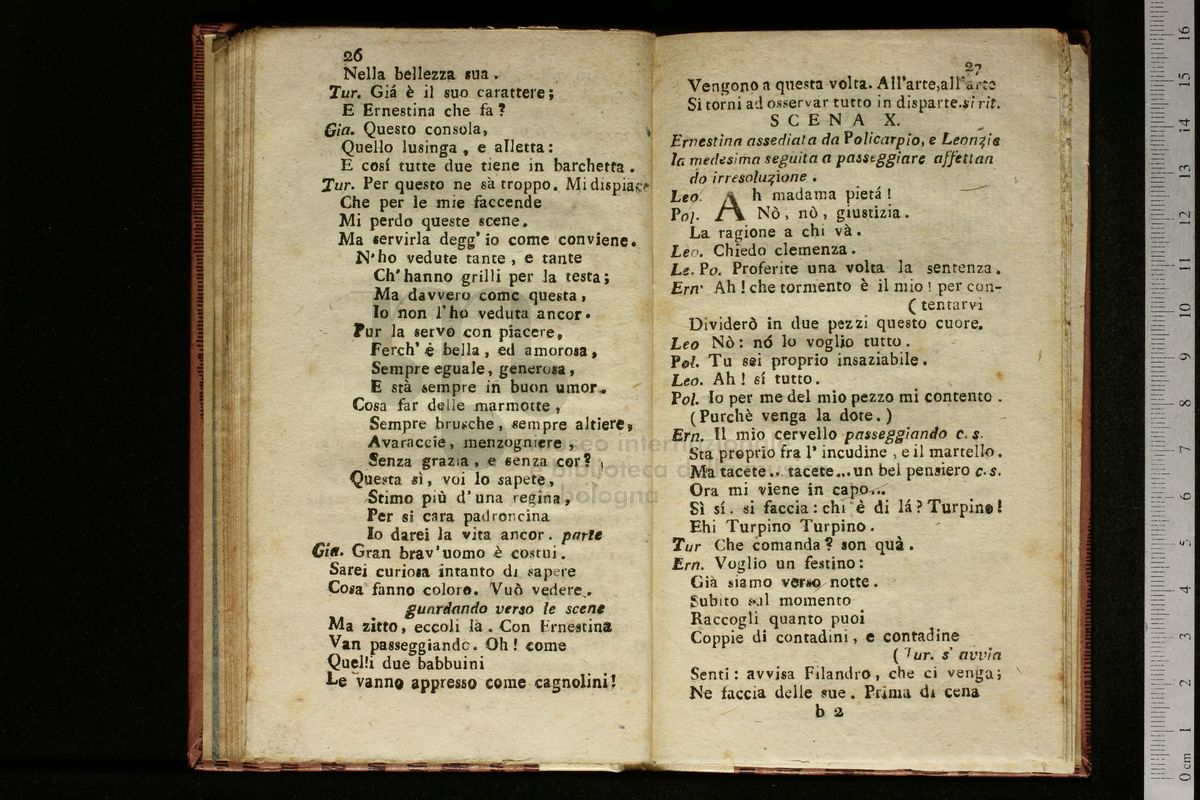 26
Nella bellezza sua.
Tur. Giá è il suo carattere;
E Ernestina che fa?
Gia. Questo consola,
Quello lusinga, e alletta:
E cosí tutte due tiene in barchetta.
Tur. Per questo ne sà troppo. Mi dispiace
Che per le mie faccende
Mi perdo queste scene.
Ma servirla degg' io come conviene.
N'ho vedute tante, e tante
Ch'hanno grilli per la testa;
Ma davvero come questa,
Io non l'ho veduta ancor.
Pur la servo con piacere,
Ferch' è bella, ed amorosa,
Sempre eguale, generosa,
E stà sempre in buon umor.
Cosa far delle marmotte,
Sempre brusche, sempre altiere,
Avaraccie, menzogniere,
Senza grazia, e senza cor?
Questa sì, voi lo sapete,
Stimo più d'una regina,
Per si cara padroncina
Io darei la vita ancor. parte
Gia. Gran brav'uomo è costui.
Sarei curiosa intanto di sapere
Cosa fanno coloro. Vuò vedere.
guardando verso le scene
Ma zitto, eccoli là. Con Ernestina
Van passeggiando. Oh! come
Quelli due babbuini
Le vanno appresso come cagnolini!
27
Vengono a questa volta. All'arte, all'arte
Si torni ad osservar tutto in disparte. si rit.
SCENA X.
Ernestina assediata da Policarpio, e Leonzio
la medesima seguita a passeggiare affettan
do irresoluzione.
Leo. Ah madama pietá!
Pol. Nò, nò, giustizia.
La ragione a chi và.
Leo. Chiedo clemenza.
Le. Po. Proferite una volta la sentenza.
Ern. Ah! che tormento è il mio! per con-
(tentarvi
Dividerò in due pezzi questo cuore.
Leo Nò: nó lo voglio tutto.
Pol. Tu sei proprio insaziabile.
Leo. Ah! sí tutto.
Pol. Io per me del mio pezzo mi contento.
(Purchè venga la dote.)
Ern. Il mio cervello passeggiando c. s.
Sta proprio fra l'incudine, e il martello.
Ma tacete.. tacete... un bel pensiero c. s.
Ora mi viene in capo...
Sì sí. si faccia: chi è di lá? Turpino!
Ehi Turpino Turpino.
Tur Che comanda? son quà.
Ern. Voglio un festino:
Già siamo verso notte.
Subito sul momento
Raccogli quanto puoi
Coppie di contadini, e contadine
(Tur. s' avvia
Senti: avvisa Filandro, che ci venga;
Ne faccia delle sue. Prima di cena
b 2
museo internazionale
e biblioteca della musica
bologna
0 cm 1 2 3 4 5 6 7 8 9 10 11 12 13 14 15 16